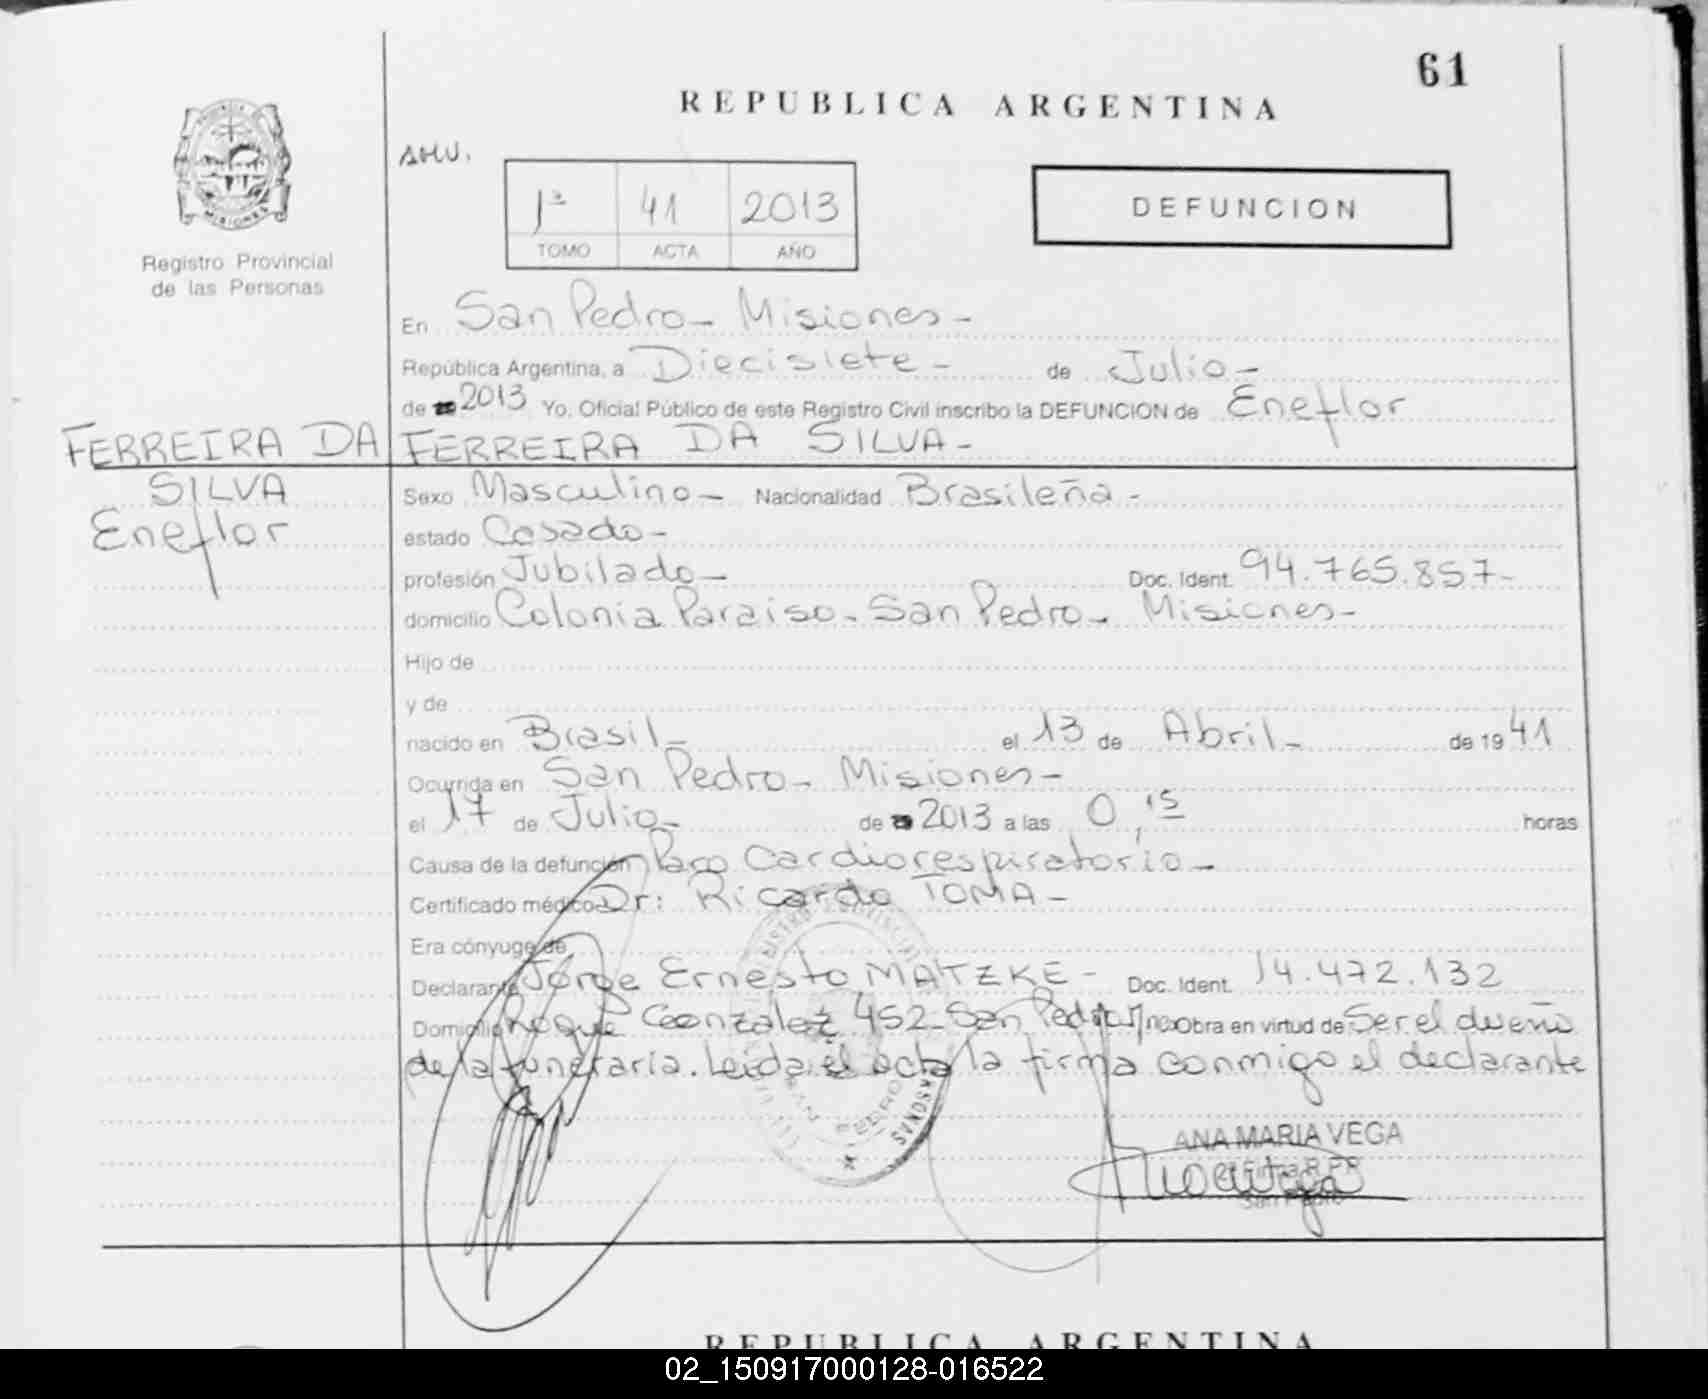 61
REPUBLICA ARGENTINA
1ª 41 2013
TOMO ACTA AÑO
DEFUNCION
MISIONES
Registro Provincial
de las Personas
En San Pedro - Misiones -
República Argentina, a Diecisiete - de Julio -
de 2013 Yo, Oficial Público de este Registro Civil inscribo la DEFUNCION de Eneflor
FERREIRA DA SILVA -
FERREIRA DA
SILVA
Eneflor
Sexo Masculino - Nacionalidad Brasileña -
estado Casado -
profesión Jubilado - Doc. Ident. 94.765.857 -
domicilio Colonia Paraiso - San Pedro - Misiones -
Hijo de
y de
nacido en Brasil - el 13 de Abril - de 1941
Ocurrida en San Pedro - Misiones -
el 17 de Julio - de 2013 a las 0,15 horas
Causa de la defunción Paro Cardiorespiratorio -
Certificado médico Dr: Ricardo TOMA -
Era cónyuge de
Declarante Jorge Ernesto MATZKE - Doc. Ident. 14.472.132
Domicilio Roque Gonzalez 452 - San Pedro Obra en virtud de Ser el dueño
de la funeraria. Leida el acta la firma conmigo el declarante
SAN PEDRO
ANA MARIA VEGA
San Pedro
REPUBLICA ARGENTINA
02_150917000128-016522